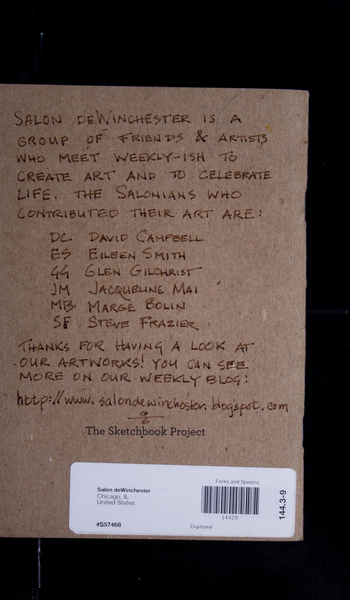 SALON DEWINCHESTER IS A
GROUP OF FRIENDS & ARTISTS
WHO MEET WEEKLY-ISH TO
CREATE ART AND TO CELEBRATE
LIFE. THE SALONIANS WHO
CONTRIBUTED THEIR ART ARE:
DC DAVID CAMPBELL
ES EILEEN SMITH
GG GLEN GILCHRIST
JM JACQUELINE MAI
MB MARGE BOLIN
SF STEVE FRAZIER
THANKS FOR HAVING A LOOK AT
OUR ARTWORKS! YOU CAN SEE
MORE ON OUR WEEKLY BLOG:
http://www.salondewinchester.blogspot.com
The Sketchbook Project
Salon deWinchester
Chicago, IL
United States
#S57468
Forks and Spoons
Digitized
144.3-9